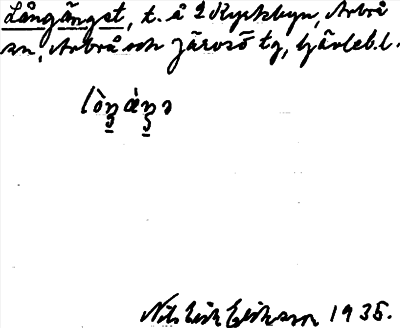 Långängst, t. å 2 Kyrkbyn, Arbrå
sn, Arbrå och Järvsö tg, Gävleb. l.
lòŋæ̀ŋə
Nils Erik Eriksson 1935.